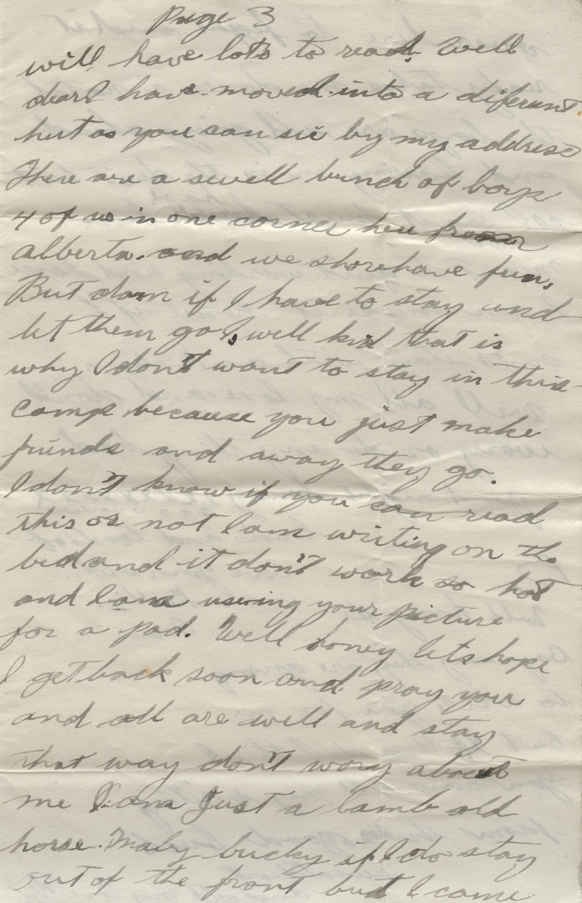 Page 3
will have lots to read. Well
dear I have moved into a diferent
hut as you can see by my address
There are a swell bunch of boys
4 of us in one corner here from
Alberta. and we shore have fun,
But darn if I have to stay and
let them go, well kid that is
why I don't want to stay in this
camp because you just make
friends and away they go.
I don't know if you can read
this or not I am writing on the
bed and it don't work so hot
and I am useing your picture
for a pad. Well honey lets hope
I get back soon and pray you
and all are well and stay
that way don't worry about
me I am Just a lamb old
horse. Maby lucky if I do stay
out of the front but I came